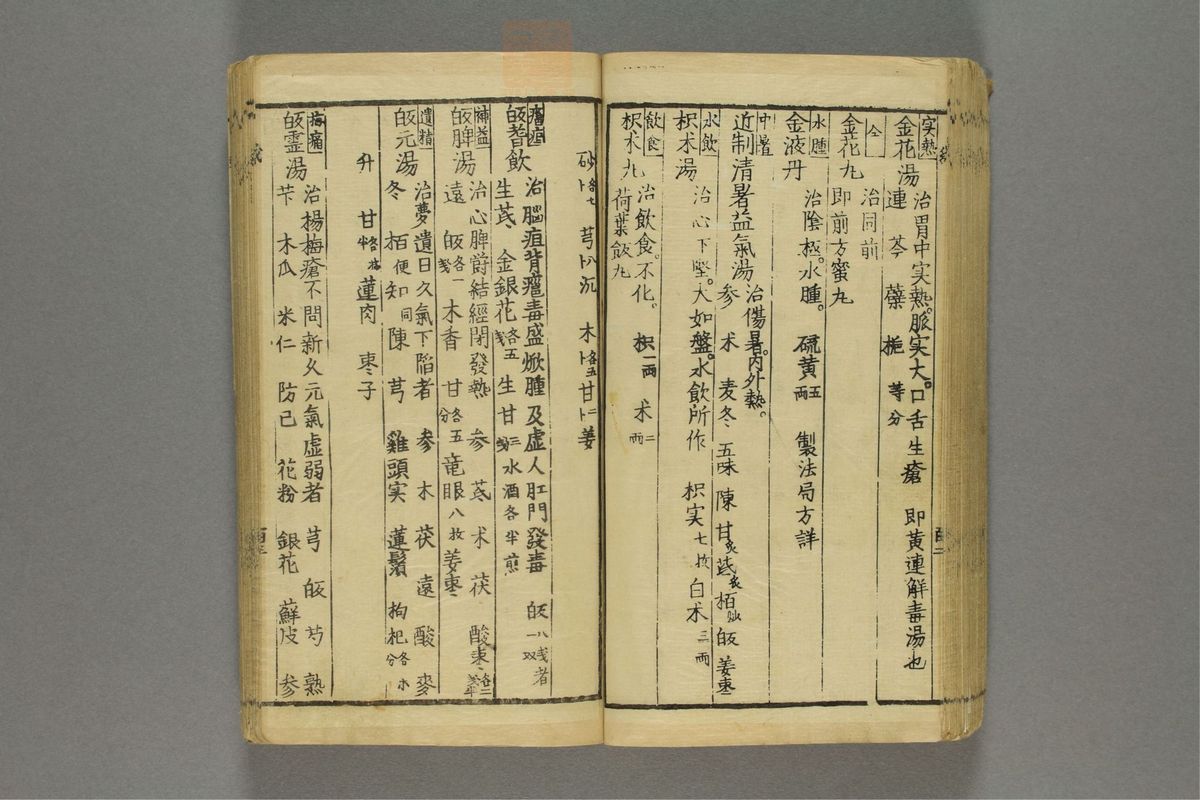 实熱
金花湯
治胃中实熱。脈实大。口舌生瘡 即黄連解毒湯也
連 芩 蘗 梔 等分
仝
金花丸
治同前
即前方蜜丸
水腫
金液丹
治陰極。水腫。 硫黄五両 製法局方詳
中暑
近制清暑益氣湯
治傷暑。内外熱。
参 朮 麦冬 五味 陳 甘炙 芪炙 栢炒 皈 姜棗
水飲
枳朮湯
治心下堅。大如盤。水飲所作 枳实七枚 白朮三両
飲食
枳朮丸
治飲食。不化。 枳一両 朮二両
荷葉飯丸
砂各七卜 芎八卜 沉 木各五卜 甘二卜 姜
癰疽
皈耆飲
治脳疽背癰毒盛焮腫及虚人肛門發毒 皈八戔 者
生芪 金銀花各五戔 生甘三戔 水酒各半煎
補益
皈脾湯
治心脾欝結經閉發熱 参 芪 朮 茯 酸棗各二
遠 皈各一戔 木香 甘各五分 竜眼八枚 姜棗
遺精
皈元湯
治夢遺日久氣下陷者 参 朮 茯 遠 酸 麥
冬 栢便 知同 陳 芎 雞頭实 蓮鬚 拘杞各分 水
升 甘 蓮肉 棗子
梅瘡
皈霊湯
治楊梅瘡不問新久元氣虚弱者 芎 皈 芍 熟
苄 木瓜 米仁 防已 花粉 銀花 蘇皮 参